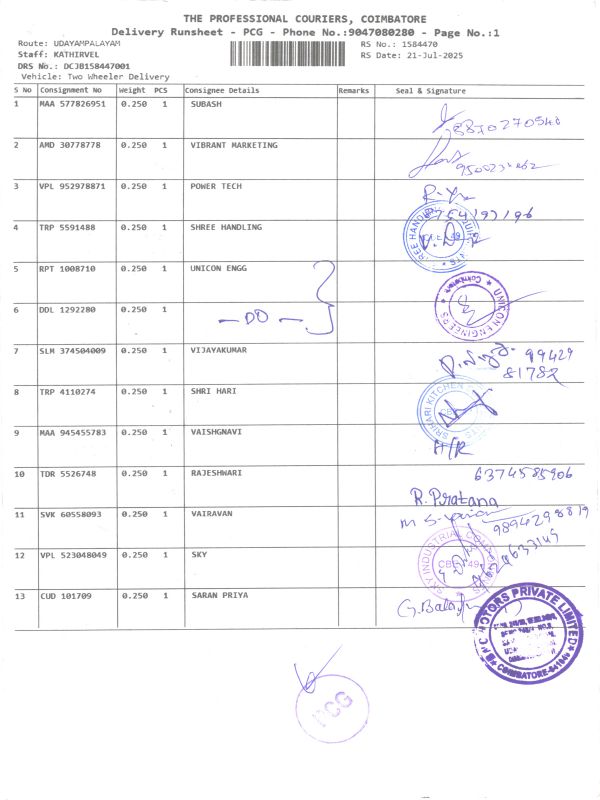 THE PROFESSIONAL COURIERS, COIMBATORE
Delivery Runsheet - PCG - Phone No.:9047080280 - Page No.:1
Route: UDAYAMPALAYAM
RS No.: 1584470
Staff: KATHIRVEL
RS Date: 21-Jul-2025
DRS No.: DCJB158447001
Vehicle: Two Wheeler Delivery
S No Consignment No Weight PCS Consignee Details Remarks Seal & Signature
1 MAA 577826951 0.250 1 SUBASH
8870270540
2 AMD 30778778 0.250 1 VIBRANT MARKETING
3 VPL 952978871 0.250 1 POWER TECH
4 TRP 5591488 0.250 1 SHREE HANDLING
5 RPT 1008710 0.250 1 UNICON ENGG
UNICON ENGINEERS
Coimbatore
6 DDL 1292280 0.250 1
- DO -
7 SLM 374504009 0.250 1 VIJAYAKUMAR
99429
81782
8 TRP 4110274 0.250 1 SHRI HARI
SRIHARI KITCHEN
9 MAA 945455783 0.250 1 VAISHGNAVI
H/R
10 TDR 5526748 0.250 1 RAJESHWARI
6374585906
R. Pratana
11 SVK 60558093 0.250 1 VAIRAVAN
9894298819
12 VPL 523048049 0.250 1 SKY
SKY INDUSTRIAL
13 CUD 101709 0.250 1 SARAN PRIYA
MOTORS PRIVATE LIMITED
COIMBATORE
PCG